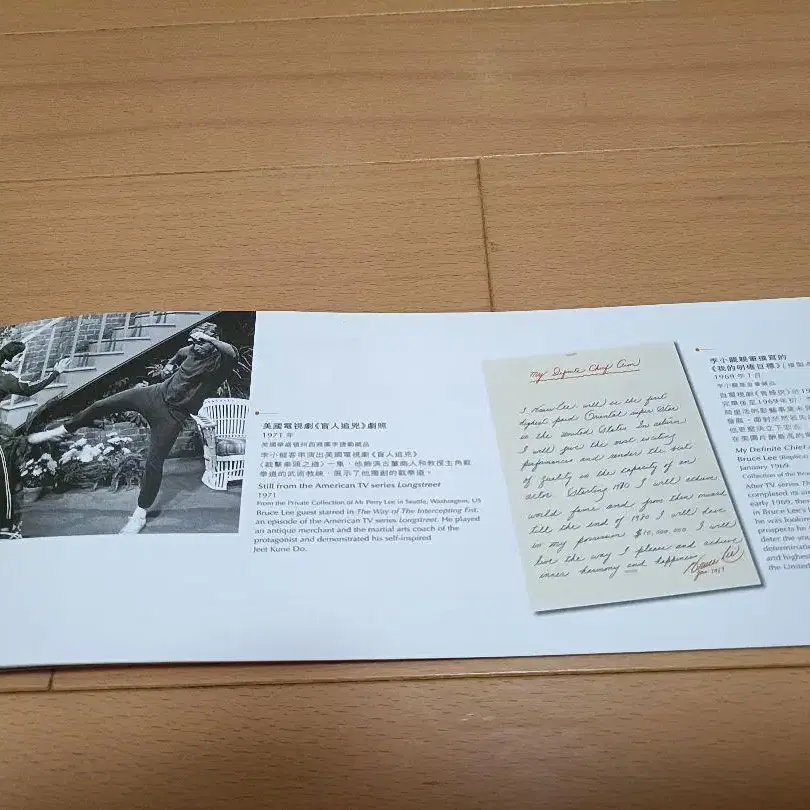 美國電視劇《盲人追兇》劇照
1971 年
李小龍客串演出美國電視劇《盲人追兇》
《截擊拳頭之道》一集，他飾演古董商人和教授主角截
拳道的武術教練，展示了他獨創的截拳道。
Still from the American TV series Longstreet
1971
From the Private Collection of Mr Perry Lee in Seattle, Washington, US
Bruce Lee guest starred in The Way of The Intercepting Fist,
an episode of the American TV series Longstreet. He played
an antique merchant and the martial arts coach of the
protagonist and demonstrated his self-inspired
Jeet Kune Do.
My Definite Chief Aim
I, Bruce Lee, will be the first
highest paid Oriental super star
in the United States. In return
I will give the most exciting
performances and render the best
of quality in the capacity of an
actor. Starting 1970 I will achieve
world fame and from then onward
till the end of 1980 I will have
in my possession $10,000,000. I will
live the way I please and achieve
inner harmony and happiness.
Bruce Lee
Jan. 1969
李小龍親筆撰寫的
1969 年 1 月
李小龍基金會藏品
My Definite Chief
Bruce Lee (Replica)
January 1969
Collection of the
After TV series
completed its
early 1969,
in Bruce Lee's
he was
prospects he
deter the
and
the United